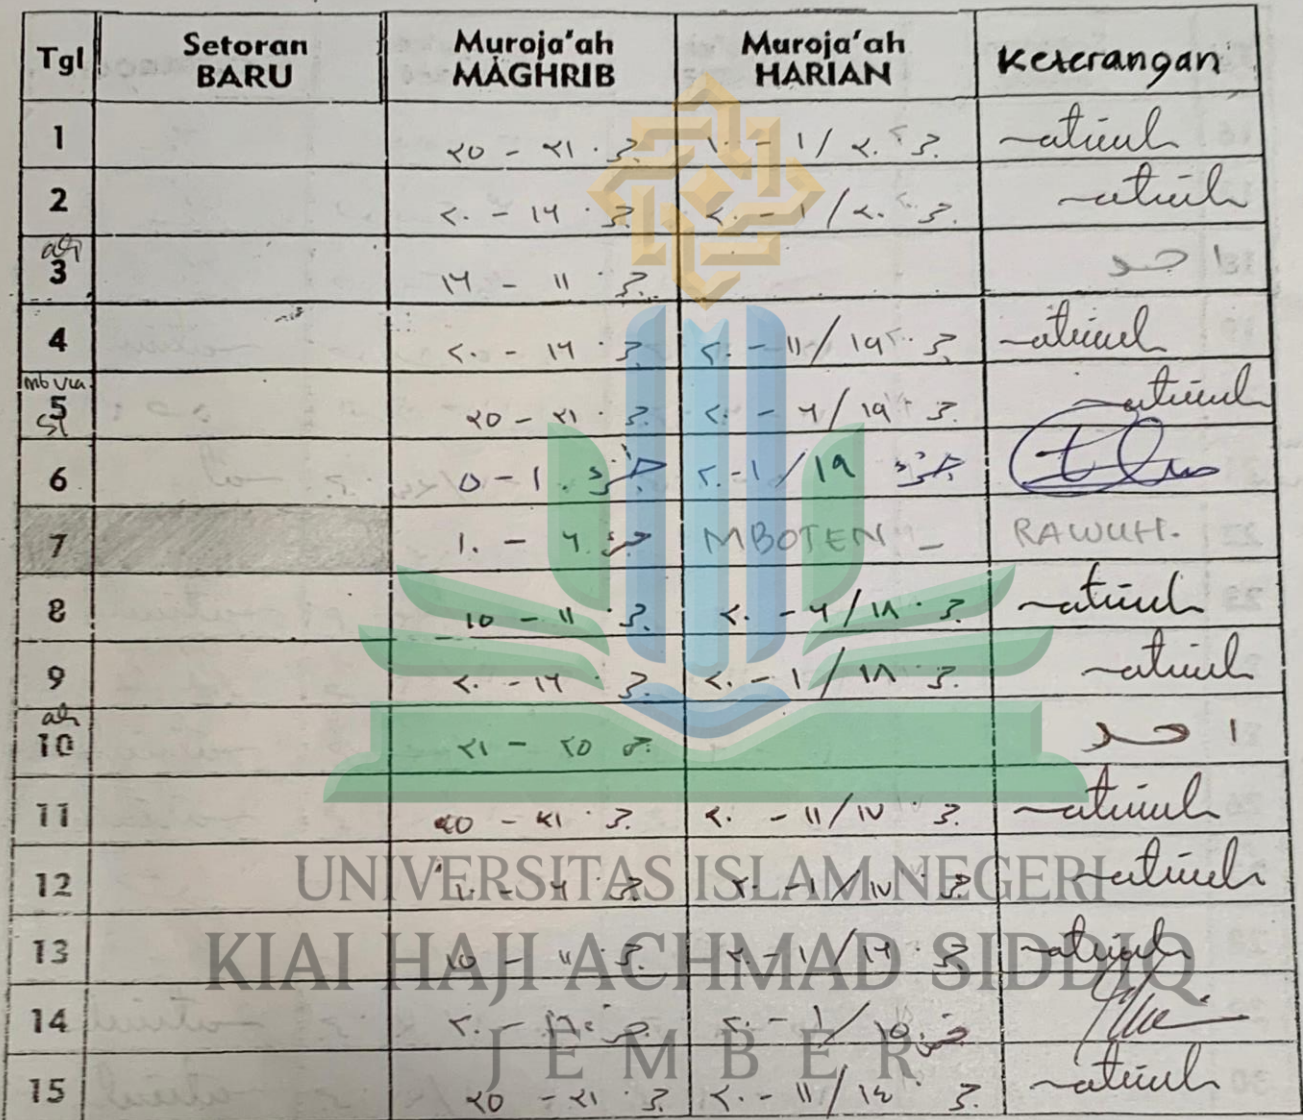 Tgl Setoran BARU Muroja'ah MAGHRIB Muroja'ah HARIAN Keterangan
1 ٢٥ - ٢١ ج. ١٠ - ١ / ٢٠ ج. atiiul
2 ٢٠ - ١٦ ج. ٢٠ - ١ / ٢٠ ج. atiiul
3 ١٦ - ١١ ج. احد
4 ٢٠ - ١٦ ج. ٢٠ - ١١ / ١٩ ج. atiiul
mb via
5 ٢٥ - ٢١ ج. ٢٠ - ٦ / ١٩ ج. atiiul
6 ٥ - ١ جزء ٢٠ - ١ / ١٩ جزء
7 ١٠ - ٦ MBOTEN - RAWUH.
8 ١٥ - ١١ ج. ٢٠ - ٦ / ١٨ ج. atiiul
9 ٢٠ - ١٦ ج. ٢٠ - ١ / ١٨ ج. atiiul
10 ٢١ - ٢٥ ج احد
11 ٢٥ - ٢١ ج. ٢٠ - ١١ / ١٧ ج. atiiul
12 ١٠ - ٦ ج. ٢٠ - ١ / ١٧ ج. atiiul
13 ١٥ - ١١ ج. ٢٠ - ١ / ١٦ ج. atiiul
14 ٢٠ - ١٦ ج. ٢٠ - ١ / ١٥
15 ٢٥ - ٢١ ج. ٢٠ - ١١ / ١٤ ج. atiiul
UNIVERSITAS ISLAM NEGERI
KIAI HAJI ACHMAD SIDDIQ
JEMBER